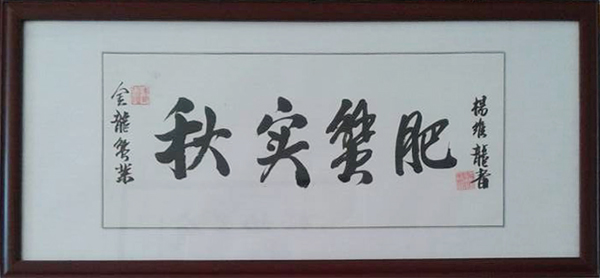 金龍蟹業
秋实蟹肥
楊維龍書